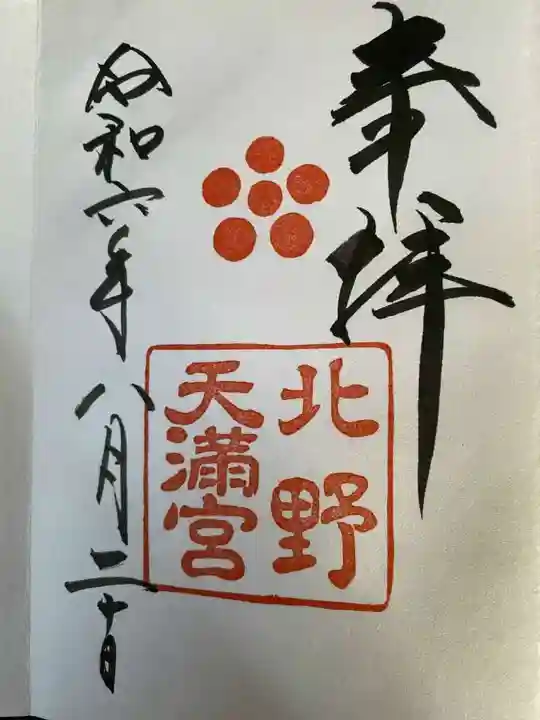 奉拝
北野
天満宮
令和六年八月二十日